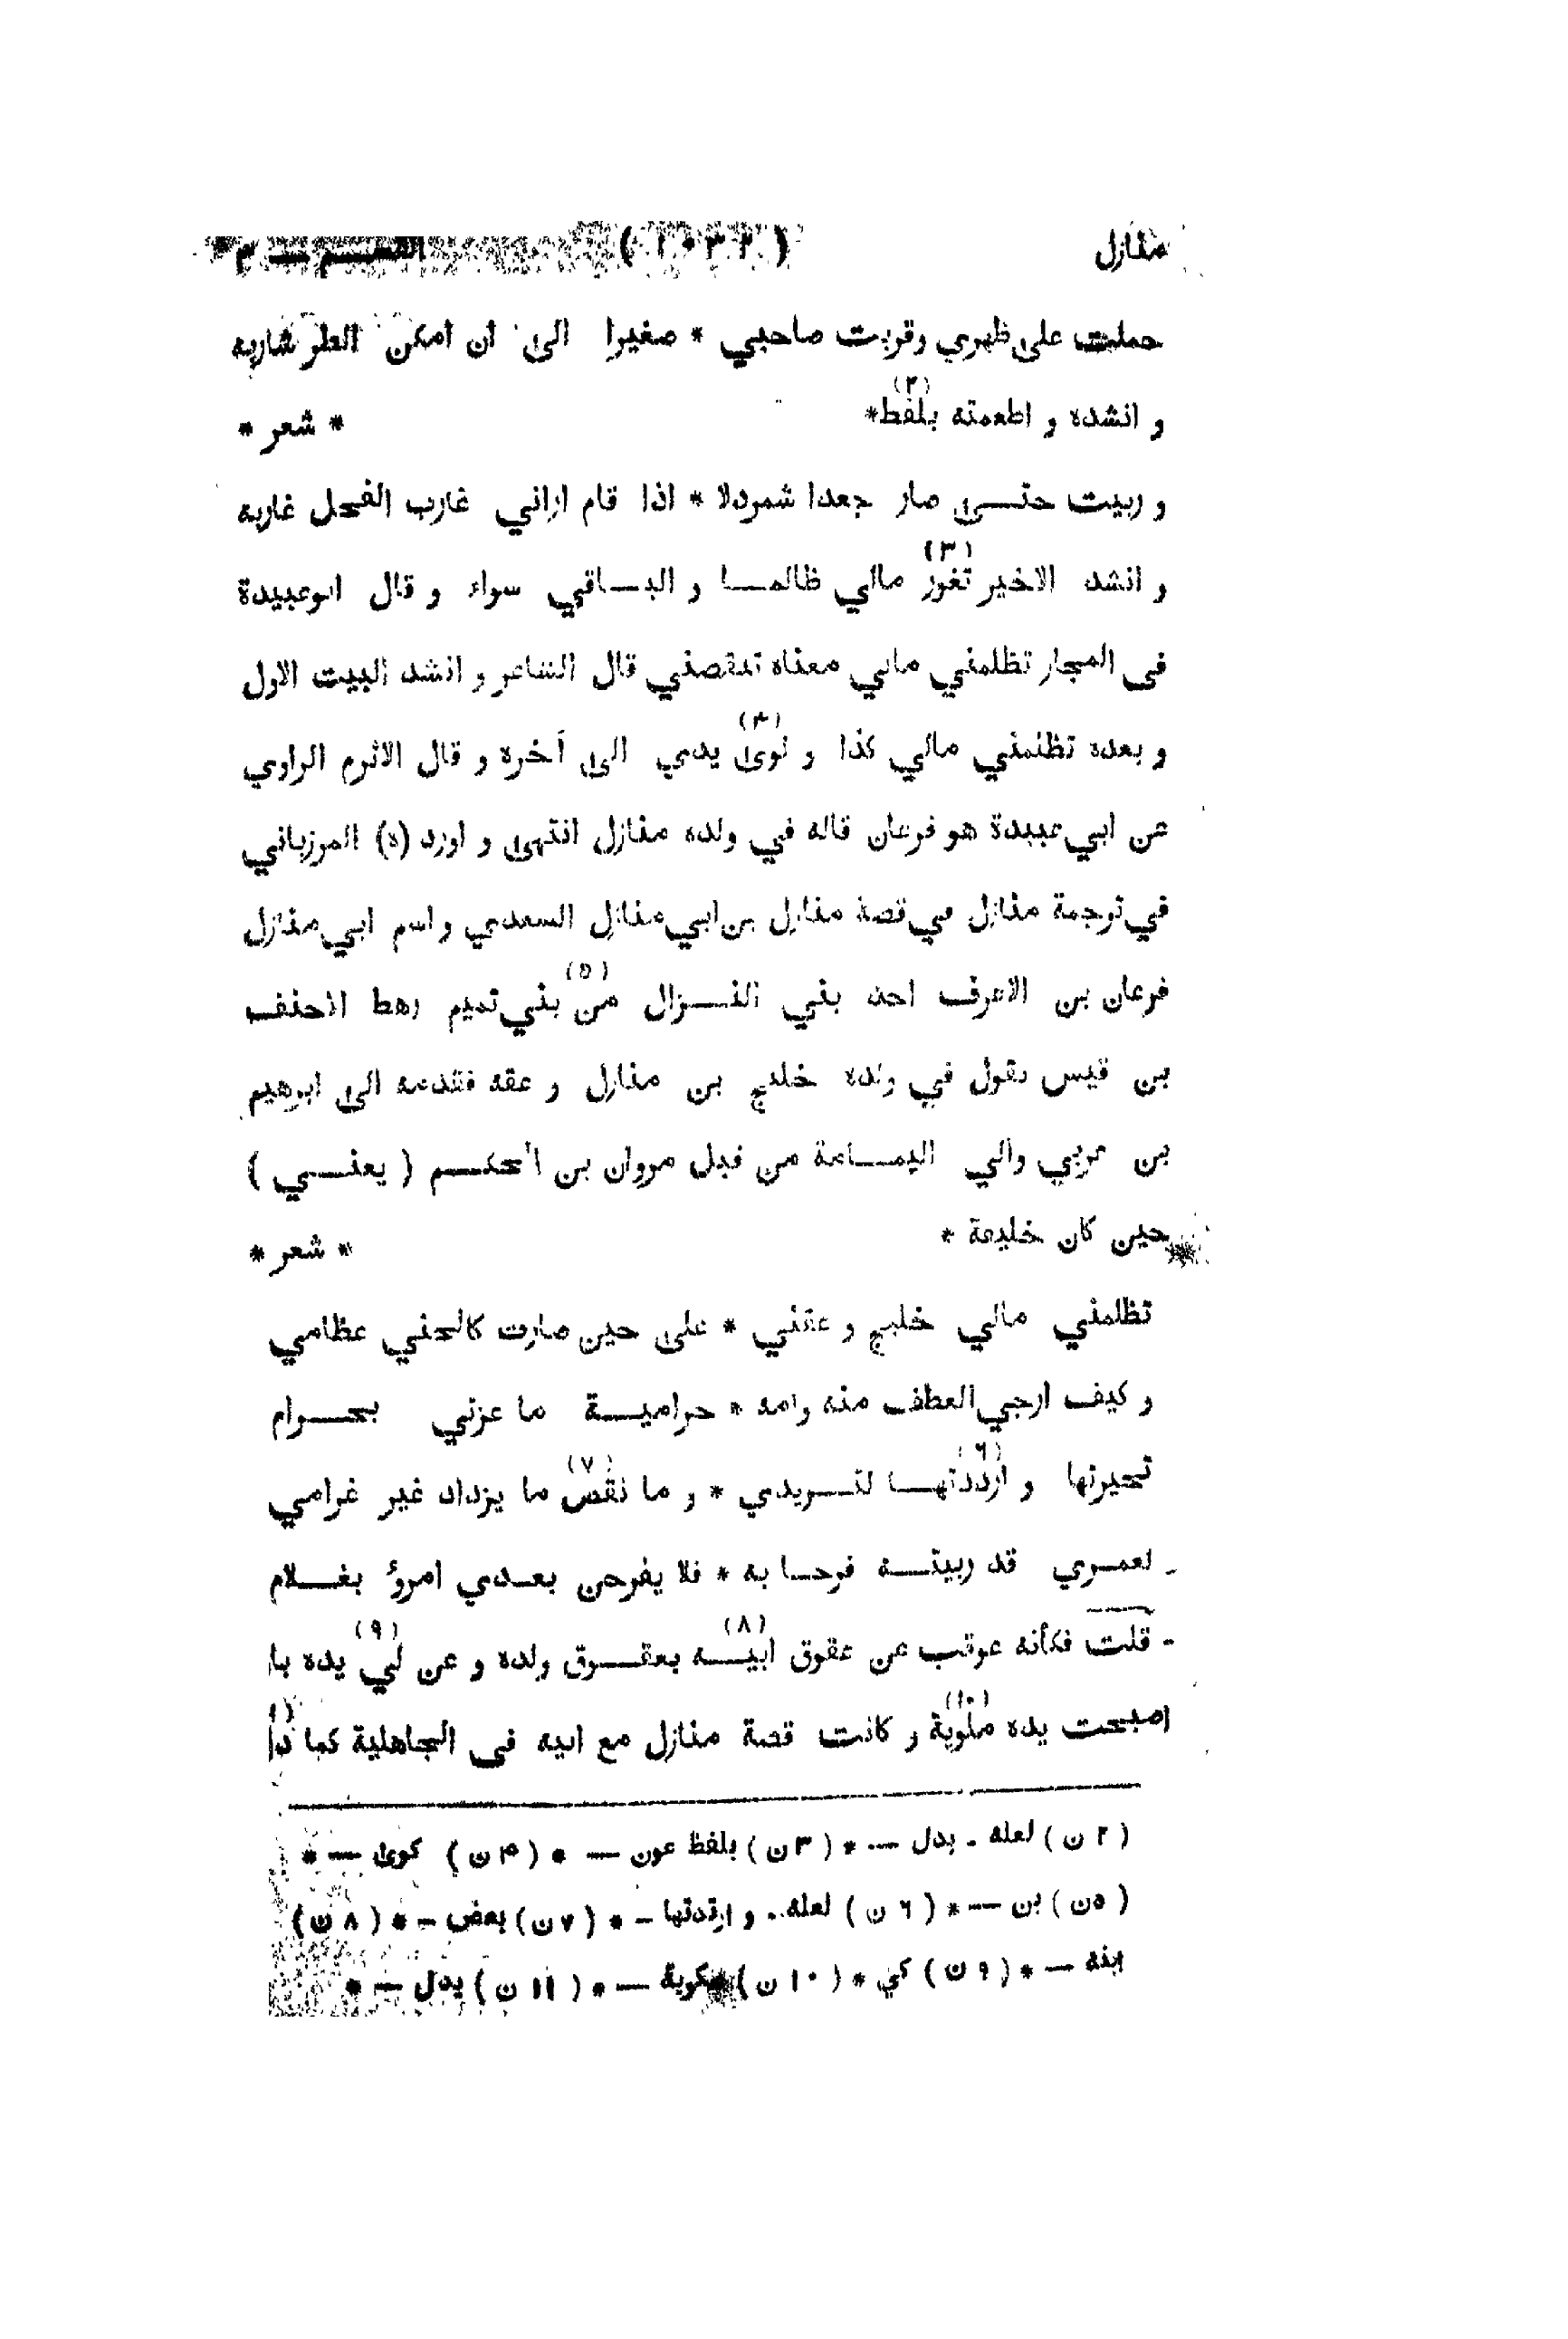 منازل ( ١٠٣٢ ) القسم — ٣
حملت على ظهري وقربت صاحبي * صغيرا الى ان امكن الطر شاربه
و انشده و اطعمته بلفظ (٢) * * شعر *
و ربيت حتى صار جعدا شمردلا * اذا قام اراني غارب الفحل غاربه
و انشد الاخير تغور (٣) مالي ظالما و الباقي سواء و قال ابوعبيدة
فى المجاز تظلمني مالي معناه تنقصني قال الشاعر و انشد البيت الاول
و بعده تظلمني مالي كذا و لوى (٤) يدي الى آخره و قال الاثرم الراوي
عن ابي عبيدة هو فرعان قاله في ولده منازل انتهى و اورد (ه) المرزباني
في ترجمة منازل في قصة منازل بن ابي منازل السعدي و اسم ابي منازل
فرعان بن الاعرف احد بني النزال من (٥) بني تميم رهط الاحنف
بن قيس يقول في ولده خليج بن منازل و عقه فقدمه الى ابرهيم
بن عربي والي اليمامة من قبل مروان بن الحكم ( يعني )
حين كان خليفة * * شعر *
تظلمني مالي خليج و عقني * على حين صارت كالحني عظامي
و كيف ارجي العطف منه وامه * حرامية ما عزني بحرام
تحيرتها و ازددتها (٦) لتزيدي * و ما نقص (٧) ما يزداد غير غرامي
لعمري قد ربيته فرحا به * فلا يفرحن بعدي امرؤ بغلام
قلت فكأنه عوقب عن عقوق ابيه (٨) بعقوق ولده و عن لي (٩) يده با
اصبحت يده ملوية (١٠) و كانت قصة منازل مع ابيه فى الجاهلية كما
( ٢ ن ) لعله ـ بدل — * ( ٣ ن ) بلفظ عون — * ( ۴ ن ) كوى — *
( ٥ن ) بن — * ( ٦ ن ) لعله . و ارتدتها — * ( ٧ ن ) بعض — * ( ٨ ن )
ابنه — * ( ٩ ن ) كي * ( ١٠ ن ) مكوية — * ( ١١ ن ) يدل — *